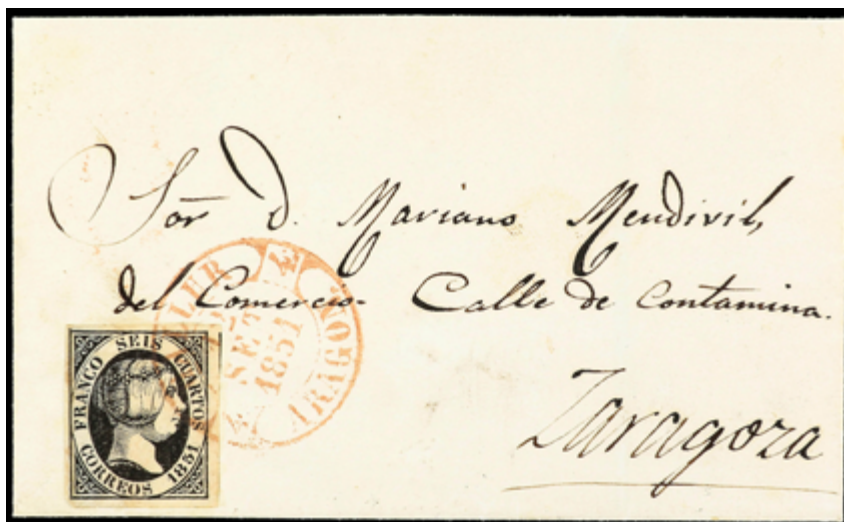 Sor D. Mariano Mendivil,
del Comercio. Calle de Contamina.
Zaragoza
SET
1851
ARAGON
FRANCO SEIS CUARTOS
CORREOS 1851